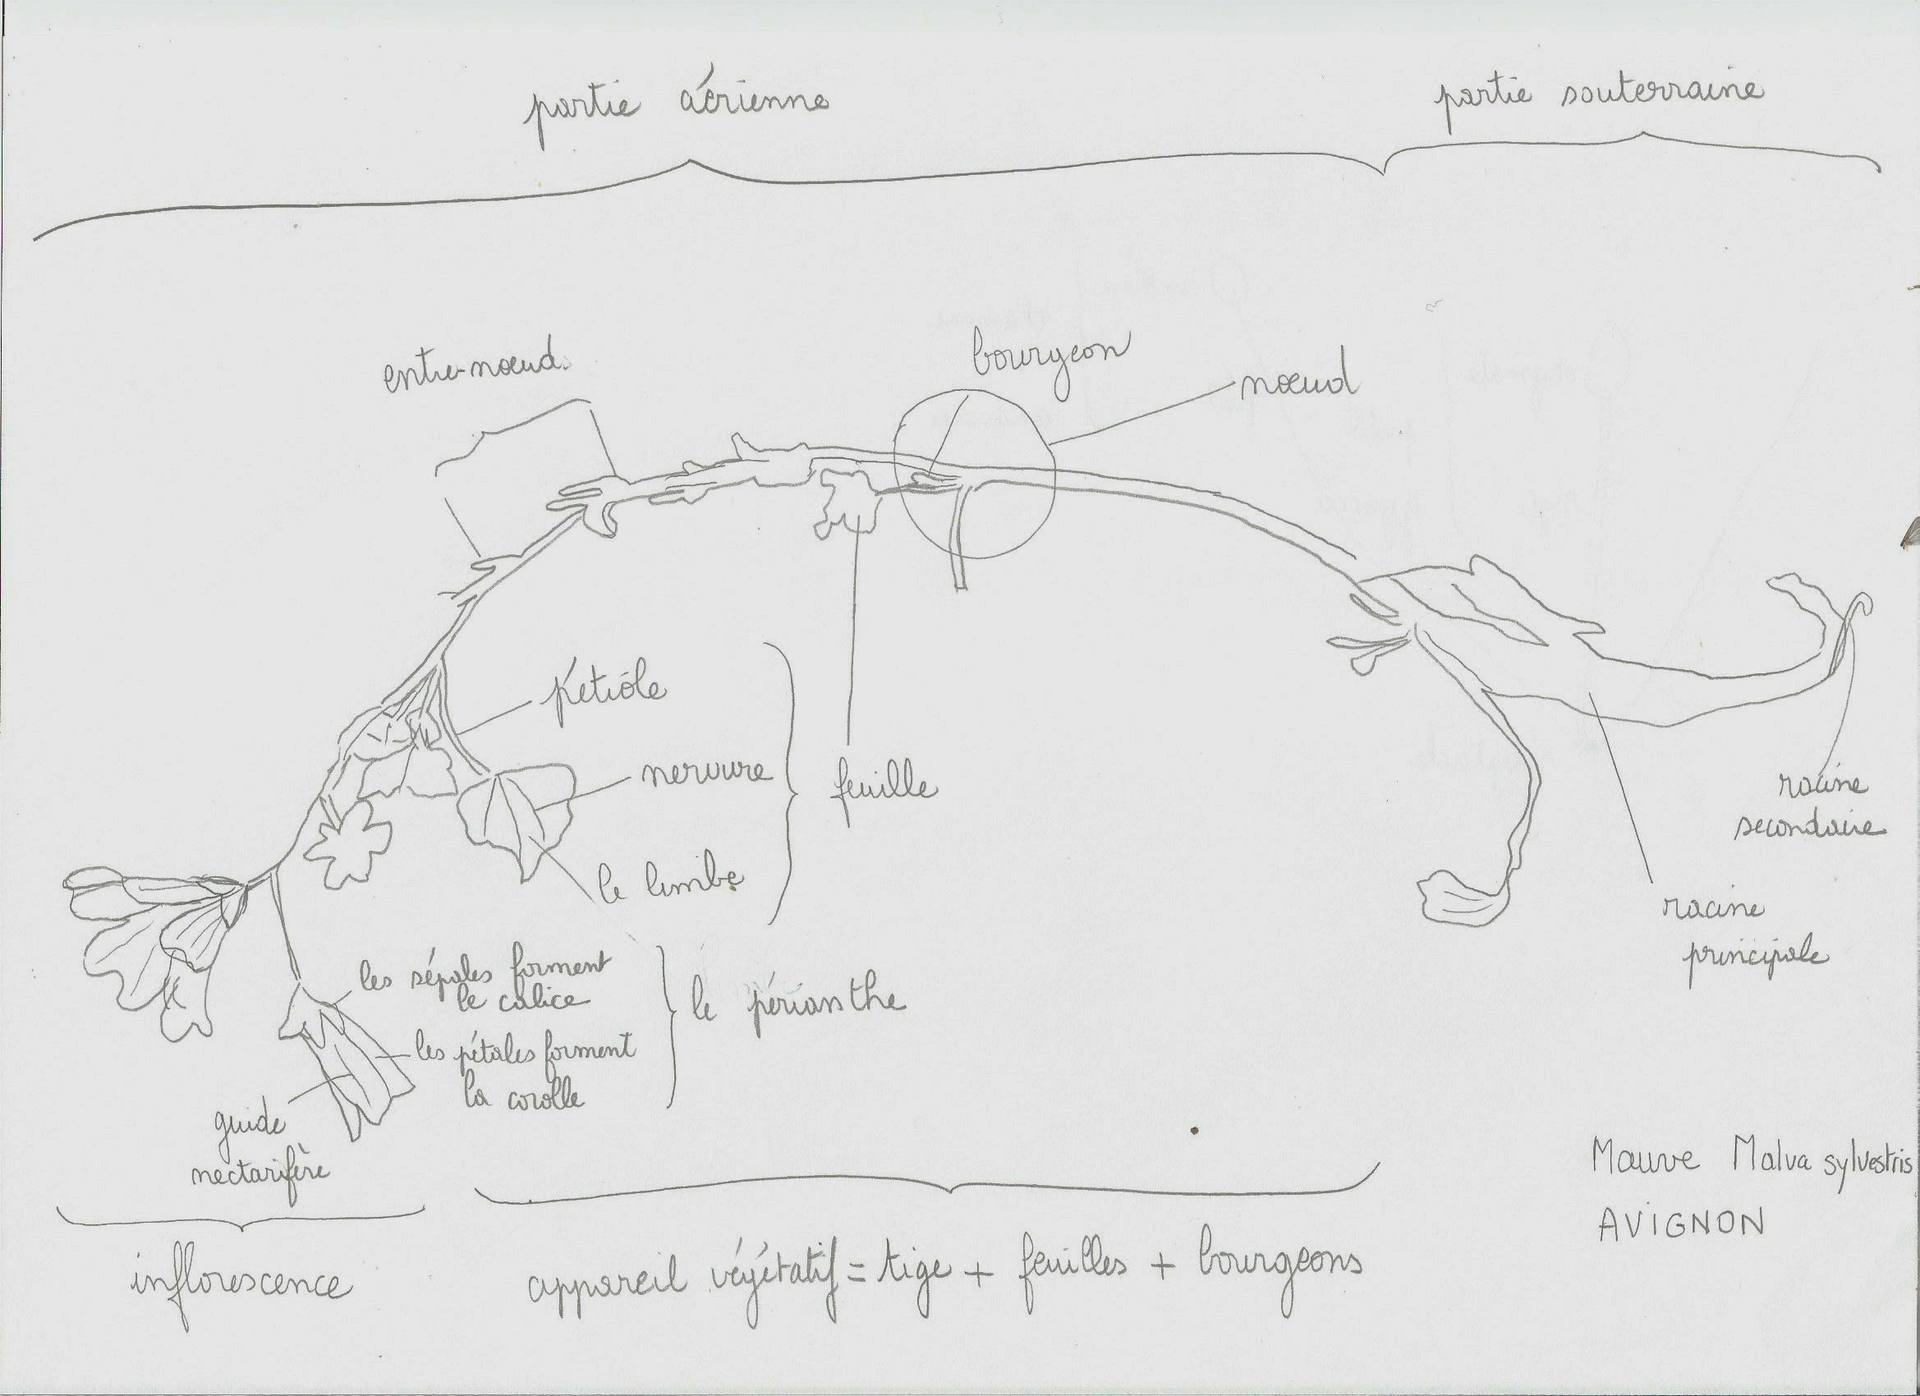 partie aérienne
partie souterraine
entre-nœud
bourgeon
nœud
pétiole
nervure
feuille
le limbe
racine
secondaire
racine
principale
les sépales forment
le calice
le périanthe
les pétales forment
la corolle
guide
nectarifère
Mauve Malva sylvestris
AVIGNON
inflorescence
appareil végétatif = tige + feuilles + bourgeons